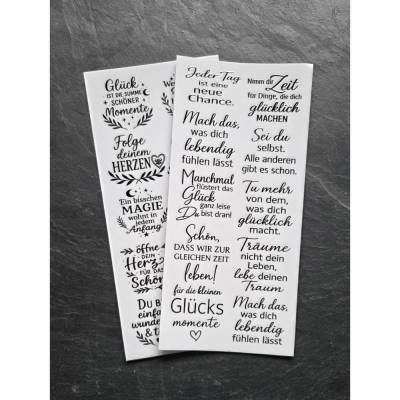 Glück
IST DIE SUMME
SCHÖNER
Momente
Folge
deinem
HERZEN
Ein bisschen
MAGIE
wohnt in
jedem
Anfang
öffne
DEIN
Herz
FÜR DAS
Schön
Du b
einfa
wunde
& t
Jeder Tag
ist eine
neue
Chance.
Mach das,
was dich
lebendig
fühlen lässt
Manchmal
flüstert das
Glück
ganz leise
Du bist dran!
Schön,
DASS WIR ZUR
GLEICHEN ZEIT
leben!
für die kleinen
Glücks
momente
Nimm dir
Zeit
für Dinge, die dich
glücklich
MACHEN
Sei du
selbst.
Alle anderen
gibt es schon.
Tu mehr
von dem,
was dich
glücklich
macht.
Träume
nicht dein
Leben,
lebe deinen
Traum
Mach das,
was dich
lebendig
fühlen lässt